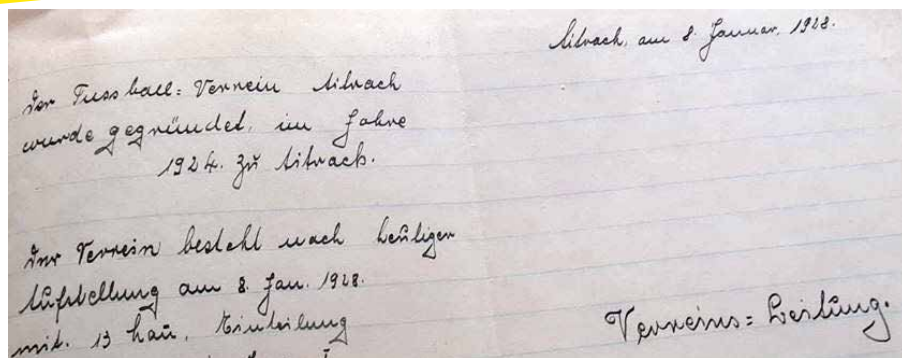 Aitrach, am 8. Januar. 1928.
Der Fussball=Verrein Aitrach
wurde gegründet, im Jahre
1924. zu Aitrach.
Der Verrein besteht nach heutiger
Aufstellung am 8. Jan. 1928.
mit. 13 Einteilung
Verreins=Leitung.